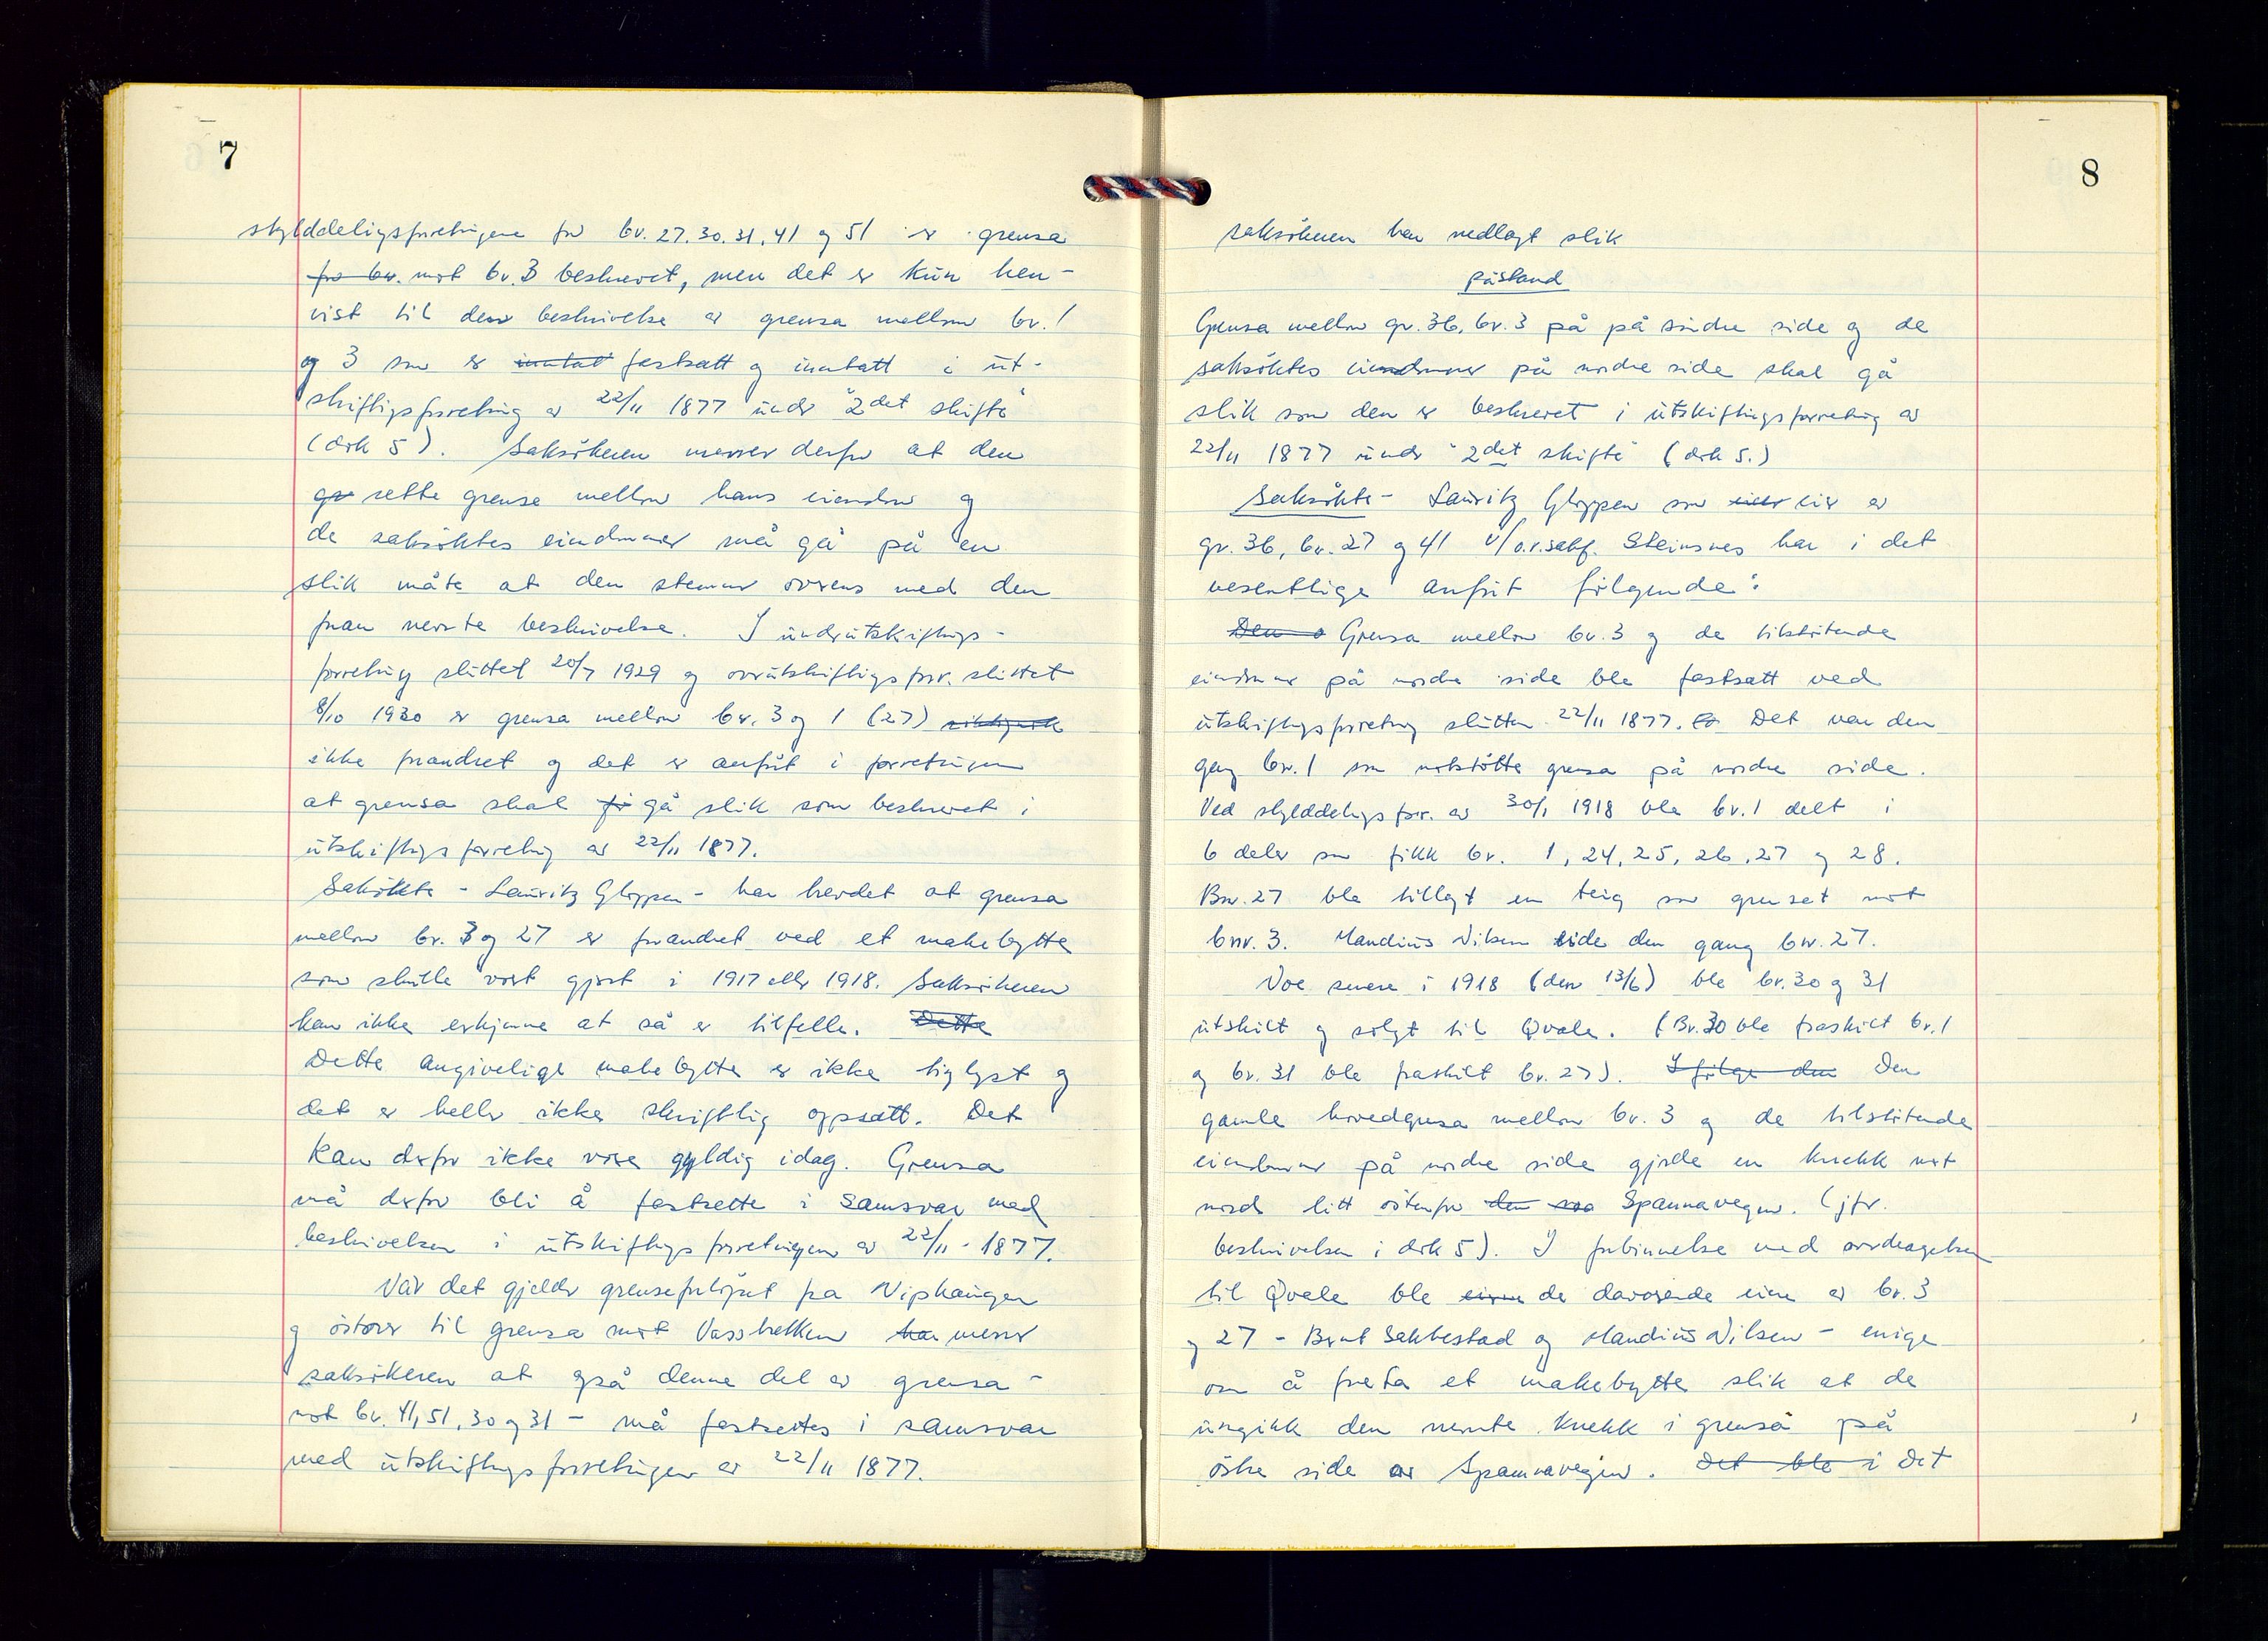 7
skylddelingsforretningene for bv. 27. 30. 31, 41 og 51 er grensa
for bv. mot bv. 3 beskrevet, men det er kun hen-
vist til den beskrivelse av grensa mellom bv. 1
og 3 som er inntat fastsatt og inntatt i ut-
skiftingsforretning av 22/11 1877 under "2det skifte"
(dok 5). Saksökeren mener derfor at den
gr rette grense mellom hans eiendom og
de saksöktes eiendommer må gå på en
slik måte at den stemmer overens med den
foran nevnte beskrivelse. I underutskiftings-
forretning sluttet 20/7 1929 og overutskiftingsforr. sluttet
8/10 1930 er grensa mellom bv. 3 og 1 (27)
ikke forandret og det er anført i forretningen
at grensa skal få gå slik som beskrevet i
utskiftingsforretning av 22/11 1877.
Saksökte - Lauritz Gloppen - har hevdet at grensa
mellom bv. 3 og 27 er forandret ved et makebytte
som skulle vært gjort i 1917 eller 1918. Saksökeren
kan ikke erkjenne at så er tilfelle. Dette
Dette angivelige makebytte er ikke tinglyst og
det er heller ikke skriftlig oppsatt. Det
kan derfor ikke være gyldig idag. Grensa
må derfor bli å fastsette i samsvar med
beskrivelsen i utskiftingsforretningen av 22/11 - 1877.
Når det gjelder grenseforlöpet fra Niphaugen
og östover til grensa mot Vassbrekken har mener
saksökeren at også denne del av grensa -
mot bv. 41, 51, 30 og 31 - må fastsettes i samsvar
med utskiftingsforretningen av 22/11 1877.
8
saksökeren har nedlagt slik
påstand
Grensa mellom gr. 36, bv. 3 på på söndre side og de
saksöktes eiendommer på nordre side skal gå
slik som den er beskrevet i utskiftingsforretning av
22/11 1877 under "2det skifte" (dok 5.)
Saksökte - Lauritz Gloppen som eier eier av
gr. 36, bv. 27 og 41 v/o.r.sakf. Steinsnes har i det
vesentlige anført fölgende:
Den o Grensa mellom bv. 3 og de tilstötende
eiendommer på nordre side ble fastsatt ved
utskiftingsforretning slutten 22/11 1877. Det var den
gang bv. 1 som motstötte grensa på nordre side.
Ved skylddelingsforr. av 30/1 1918 ble bv. 1 delt i
6 deler som fikk bv. 1, 24, 25, 26, 27 og 28.
Bnr. 27 ble tillagt en teig som grenset mot
bnr. 3. Mandius Nilsen eide den gang bnr. 27.
Noe senere i 1918 (den 13/6) ble bv. 30 og 31
utskilt og solgt til Qvale. (Bv. 30 ble fraskilt bv. 1
og bv. 31 ble fraskilt bv. 27). I fölge den Den
gamle hovedgrensa mellom bv. 3 og de tilstötende
eiendommer på nordre side gjorde en knekk mot
nord litt östenfor den Spannavegen. (jfr.
beskrivelsen i dok 5). I forbinnelse med overdragelsen
til Qvale ble eierne de daværende eiere av bv. 3
og 27 - Bernt Sekkestad og Mandius Nilsen - enige
om å foreta et makebytte slik at de
unngikk den nevnte knekk i grensa på
östre side av Spannavegen. Det ble i Det